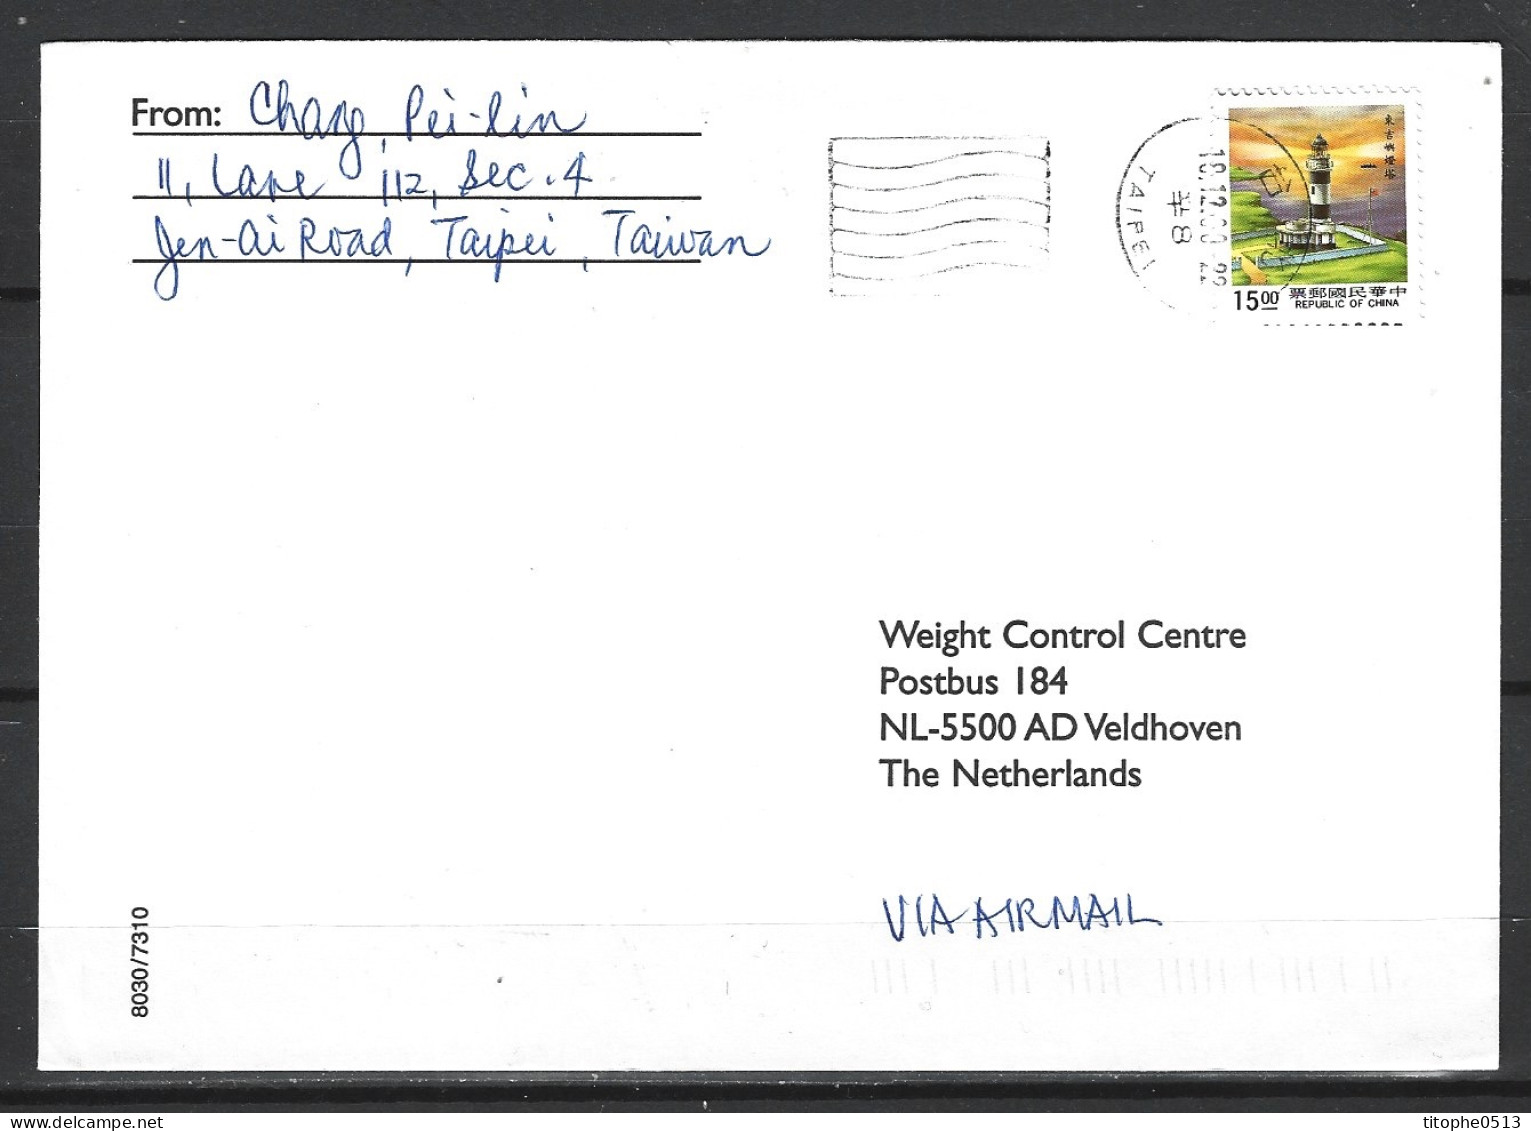 From: Chang, Pei-lin
11, Lane 112, Sec. 4
Jen-Ai Road, Taipei, Taiwan
東吉嶼燈塔
TAIPEI
#8
15.00 票郵國民華中
REPUBLIC OF CHINA
Weight Control Centre
Postbus 184
NL-5500 AD Veldhoven
The Netherlands
VIA AIRMAIL
8030/7310
titophe0513